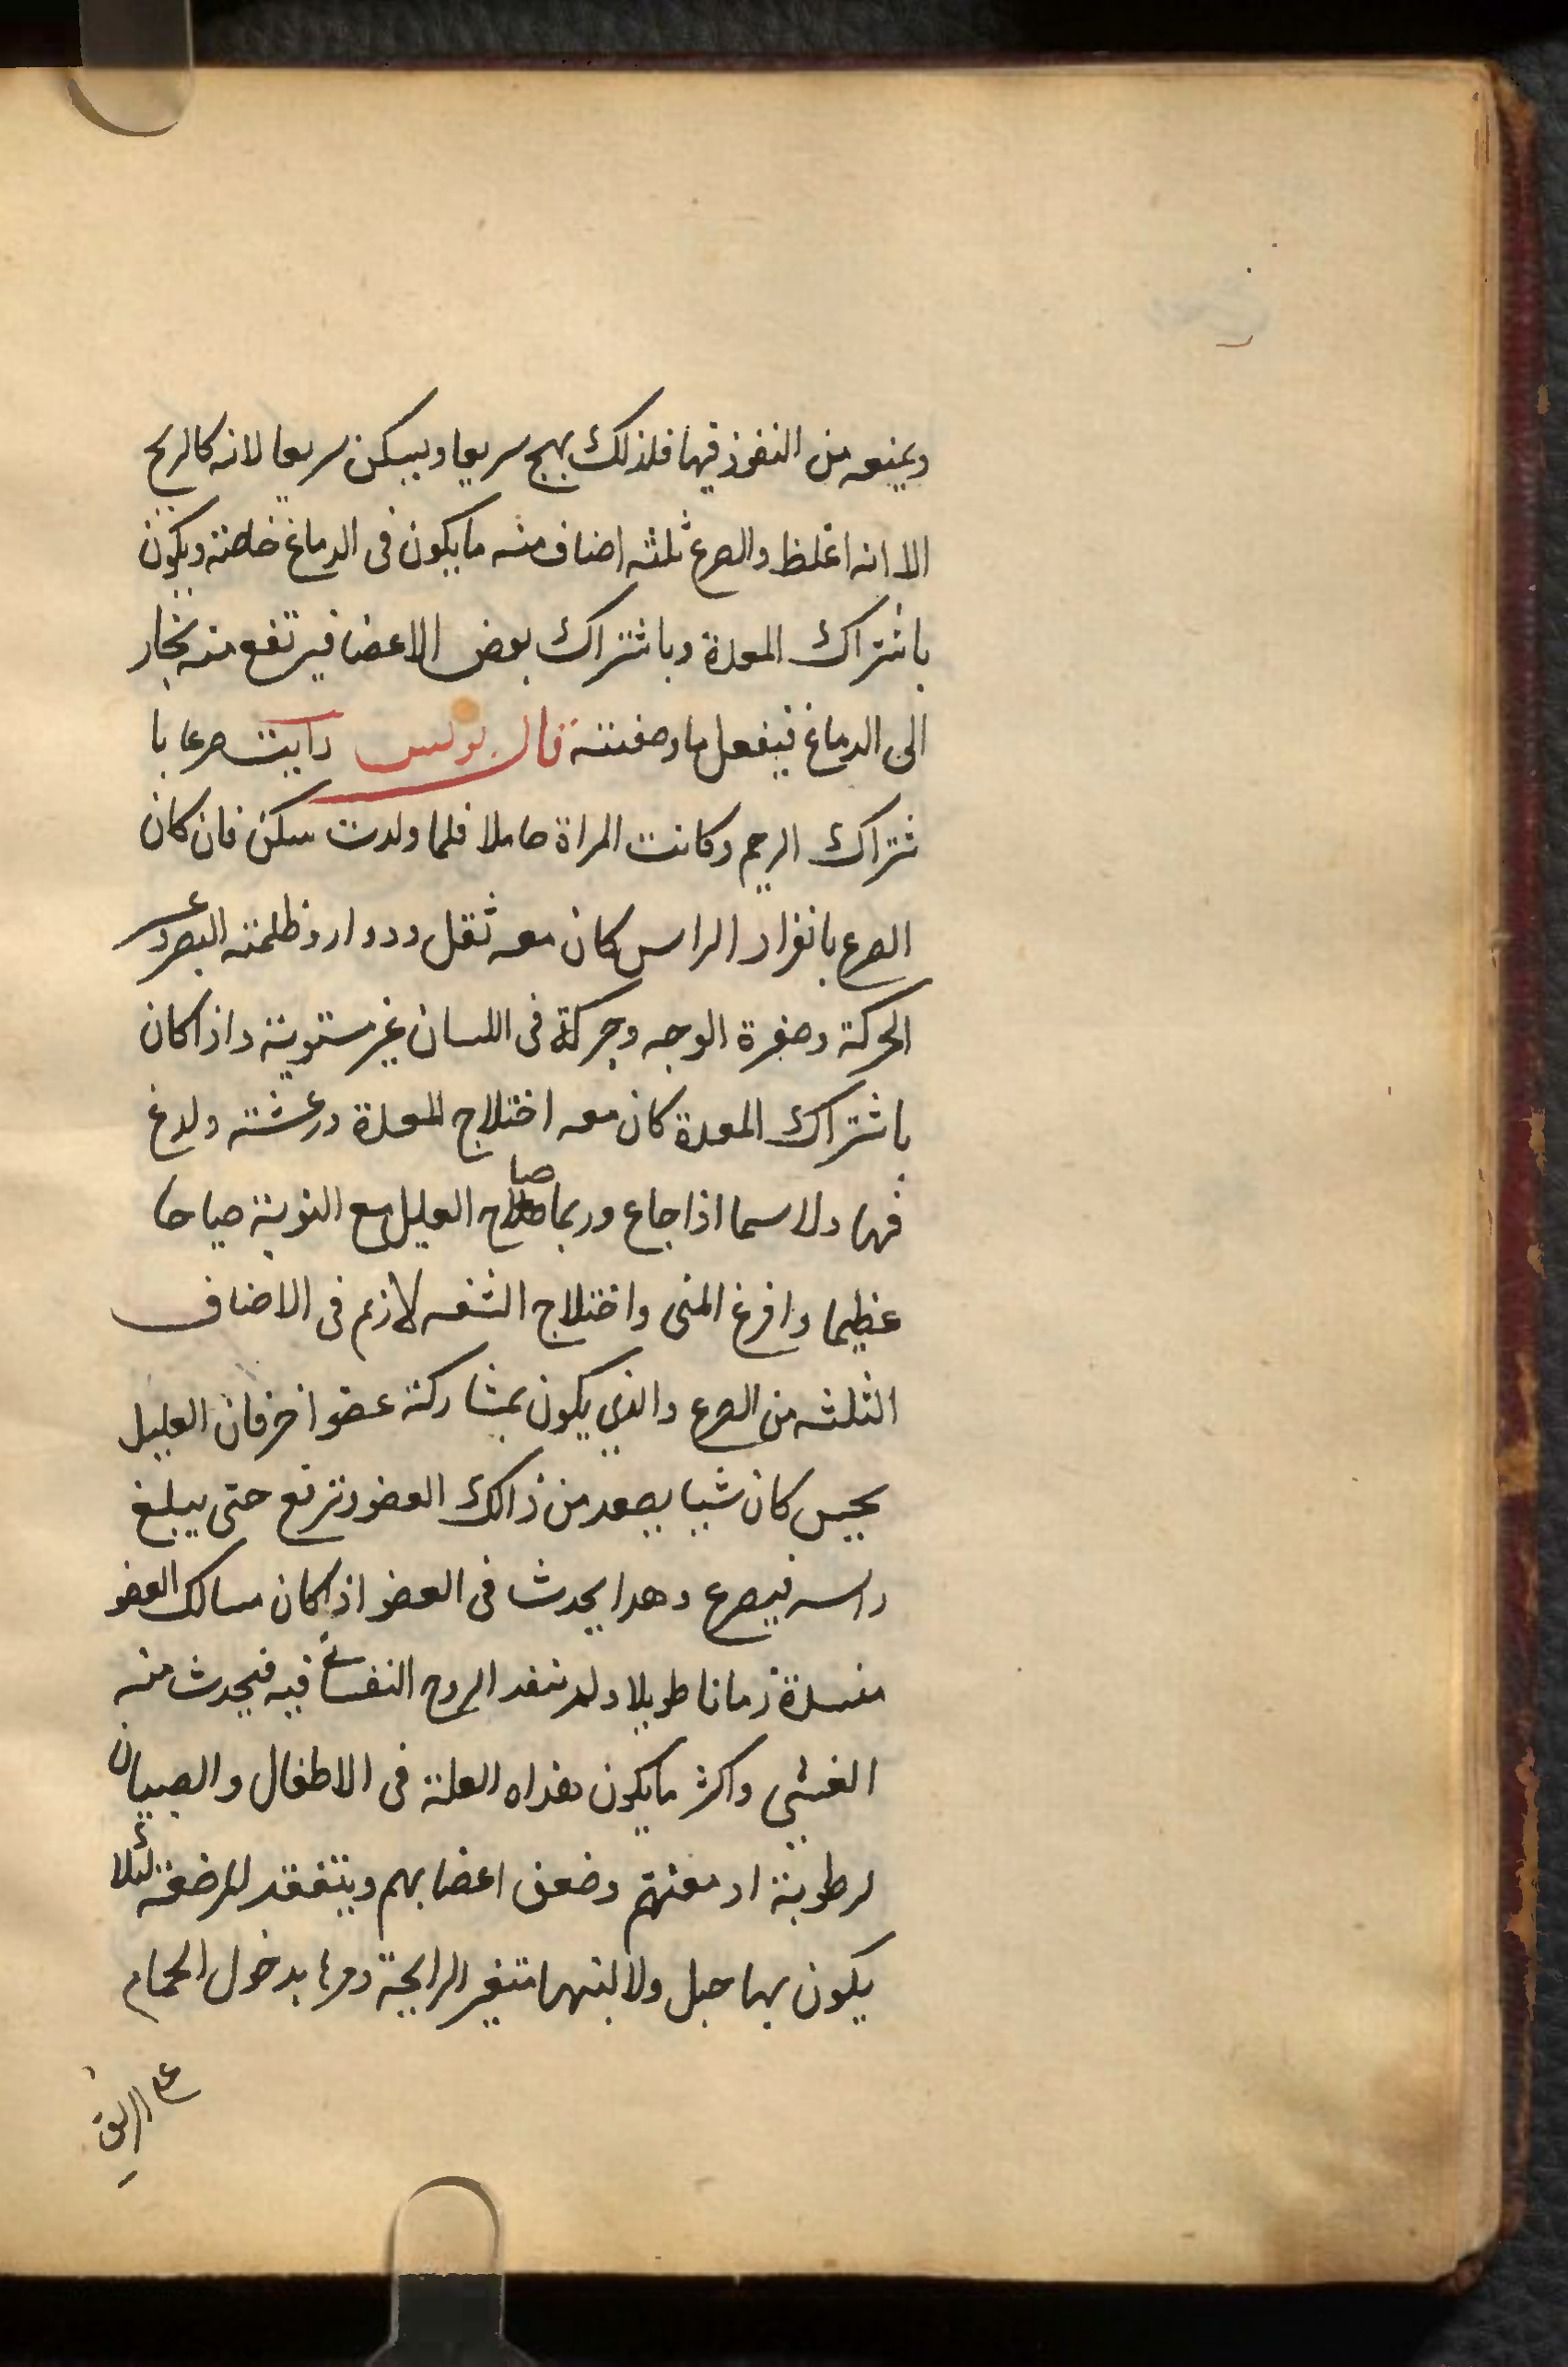 ويمنعه من النفوذ فيها فلذلك يهيج سريعا ويسكن سريعا لانه كالريح
الا انه اغلظ والصرع ثلثه اصناف منه ما يكون فى الدماغ خاصة ويكون
باشتراك المعدة وباشتراك بعض الاعضا فيرتفع منه بخار
الى الدماغ فيفعل ما وصفته قال بولس رايت صرعا با
شتراك الرحم وكانت المراة حاملا فلما ولدت سكن فان كان
الصرع بانفراد الراس كان معه ثقل ودوار وظلمة البصر وعسر
الحركة وصفرة الوجه وحركة فى اللسان غير مستوية واذا كان
باشتراك المعدة كان معه اختلاج المعدة ورعشة ولدغ
فيها ولاسيما اذا جاع وربما صاح العليل مع النوبة صياحا
عظيما وافرغ المنى واختلاج الشفه لازم فى الاصناف
الثلثه من الصرع والذي يكون بمشاركة عضو اخر فان العليل
يحس كان شيا يصعد من ذالك العضو وترتفع حتى يبلغ
راسه فيصرع وهدا يحدث فى العضو اذا كان مسالك العضو
منسدة زمانا طويلا ولم تنفد الروح النفسانى فيه فيحدث منه
الغشي واكثر مايكون هذاه العلة فى الاطفال والصبيان
لرطوبة ادمغتهم وضعف اعضابهم ويتفقد المرضعة لئلا
يكون بها حبل ولا لبنها متغير الرايحة ومرها بدخول الحمام
على الريق